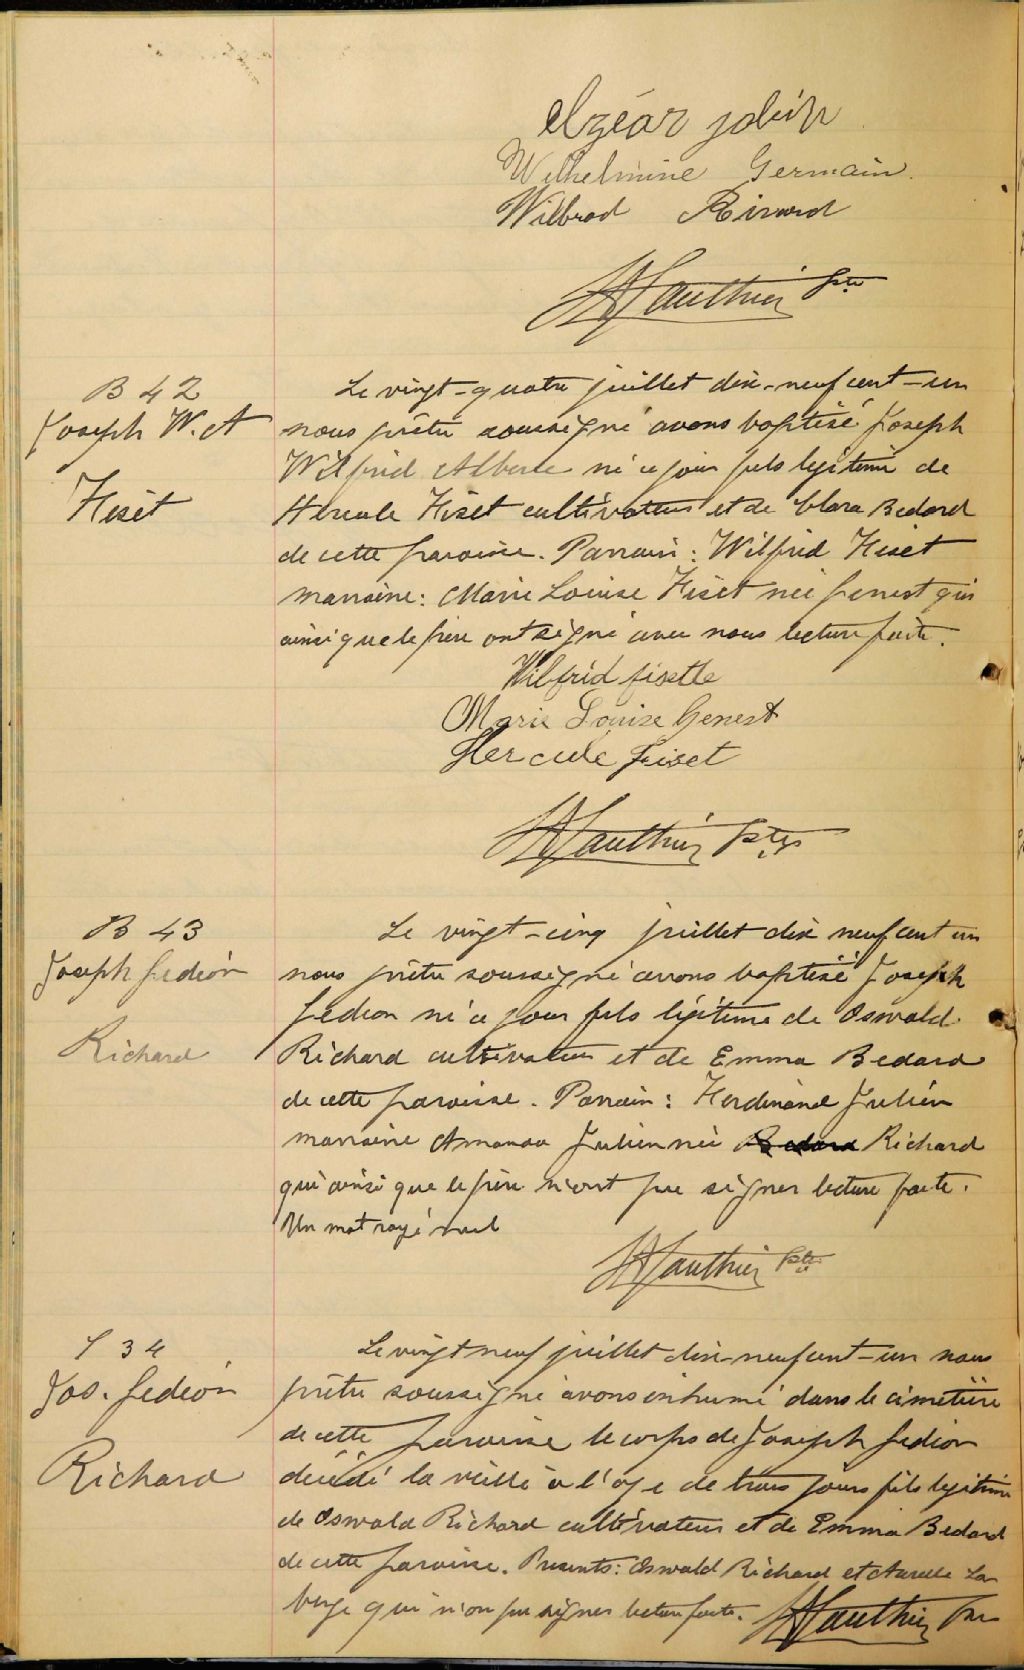 elzéar jobin
Wilhelmine Germain.
Wilbrod Rivard
Gauthier Ptre
B 42
Joseph W. A
Fiset
Le vingt-quatre juillet dix-neuf cent-un
nous prêtre soussigné avons baptisé Joseph
Wilfrid Albert né ce jour fils légitime de
Hercule Fiset cultivateur et de Clara Bedard
de cette paroisse. Parrain: Wilfrid Fiset
marraine: Marie Louise Fiset née Genest qui
ainsi que le père ont signé avec nous lecture faite.
Wilfrid fisette
Marie Louise Genest
Hercule Fiset
Gauthier Ptre
B 43
Joseph Gedeon
Richard
Le vingt-cinq juillet dix neuf cent un
nous prêtre soussigné avons baptisé Joseph
Gedeon né ce jour fils légitime de Oswald
Richard cultivateur et de Emma Bedard
de cette paroisse. Parrain: Ferdinand Julien
marraine Amanda Julien née Bedard Richard
qui ainsi que le père n'ont pu signer lecture faite.
Un mot rayé nul
Gauthier Ptre
S 34
Jos. Gedeon
Richard
Le vingt neuf juillet dix-neuf cent-un nous
prêtre soussigné avons inhumé dans le cimetière
de cette paroisse le corps de Joseph Gedeon
décédé la veille à l'age de trois jours fils légitime
de Oswald Richard cultivateur et de Emma Bedard
de cette paroisse. Présents: Oswald Richard et La
berge qui n'on pu signer lecture faite. Gauthier Ptre